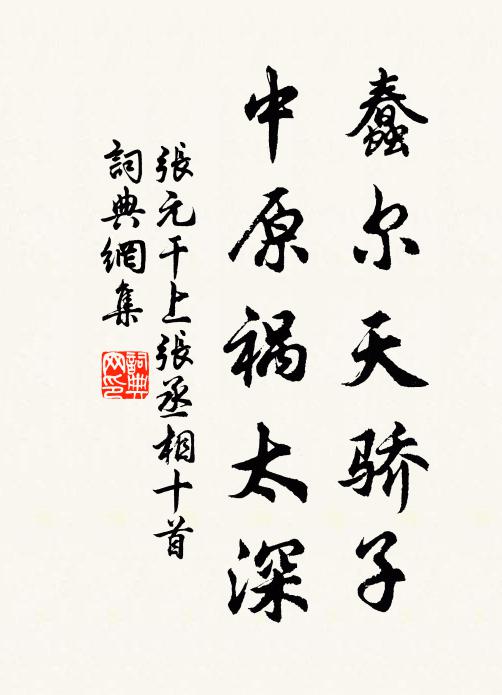 蠢尔天骄子
中原祸太深
張元干上張丞相十首
詞典網集
詞典網印